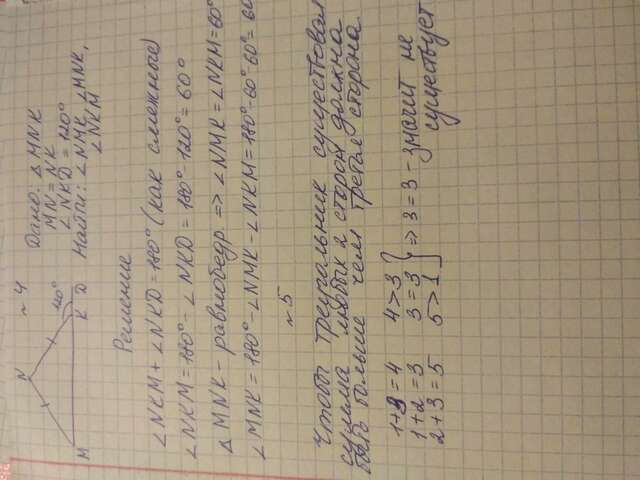 ~ 4
N
M
K
D
120°
Дано: Δ MNK
MN = NK
∠ NKD = 120°
Найти: ∠ NMK, ∠ MNK,
∠ NKM
Решение
∠ NKM + ∠ NKD = 180° (как смежные)
∠ NKM = 180° - ∠ NKD = 180° - 120° = 60°
Δ MNK - равнобедр => ∠ NMK = ∠ NKM = 60°
∠ MNK = 180° - ∠ NMK - ∠ NKM = 180° - 60° - 60° = 60
~ 5
Чтобы треугольник существовал
сумма любых 2 сторон должна
быть больше чем третья сторона
1 + 3 = 4 4 > 3
1 + 2 = 3 3 = 3 } => 3 = 3 - значит не
2 + 3 = 5 5 > 1 существует